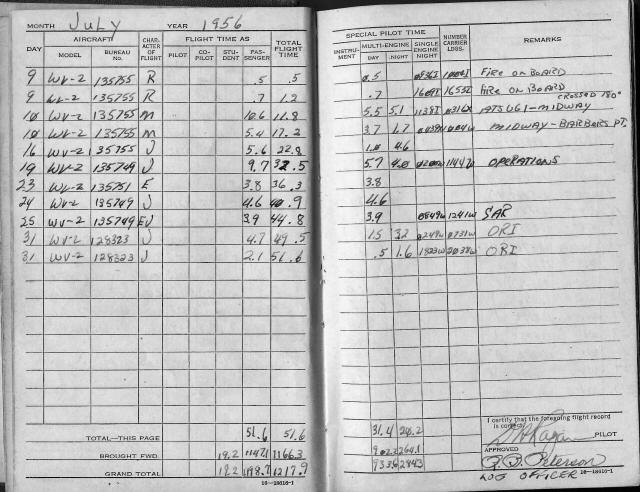 MONTH JULY YEAR 1956
DAY AIRCRAFT CHARACTER OF FLIGHT FLIGHT TIME AS TOTAL FLIGHT TIME
MODEL BUREAU NO. PILOT CO-PILOT STUDENT PASSENGER
9 WV-2 135755 R .5 .5
9 WV-2 135755 R .7 1.2
10 WV-2 135755 M 10.6 11.8
10 WV-2 135755 M 5.4 17.2
16 WV-2 135755 J 5.6 22.8
19 WV-2 135749 J 9.7 32.5
23 WV-2 135751 E 3.8 36.3
24 WV-2 135749 J 4.6 40.9
25 WV-2 135749 EJ 3.9 44.8
31 WV-2 128323 J 4.7 49.5
31 WV-2 128323 J 2.1 51.6
TOTAL—THIS PAGE 51.6 51.6
BROUGHT FWD. 19.2 1147.1 1166.3
GRAND TOTAL 19.2 1198.7 1217.9
16—18616-1
SPECIAL PILOT TIME NUMBER CARRIER LDGS. REMARKS
INSTRUMENT MULTI-ENGINE SINGLE ENGINE NIGHT
DAY NIGHT
0.5 FIRE ON BOARD
.7 1609I 1653I FIRE ON BOARD
CROSSED 180°
5.5 5.1 1138I ATSUGI-MIDWAY
3.7 1.7 MIDWAY-BARBERS PT.
1.0 4.6
5.7 4.0 1144W OPERATIONS
3.8
4.6
3.9 0849W 1241W SAR
1.5 3.2 0249W 0731W ORI
.5 1.6 1823W 2038W ORI
31.4 20.2
902.2 264.1
933.6 284.3
I certify that the foregoing flight record is correct.
PILOT
APPROVED
Peterson
LOG OFFICER 16—18616-1